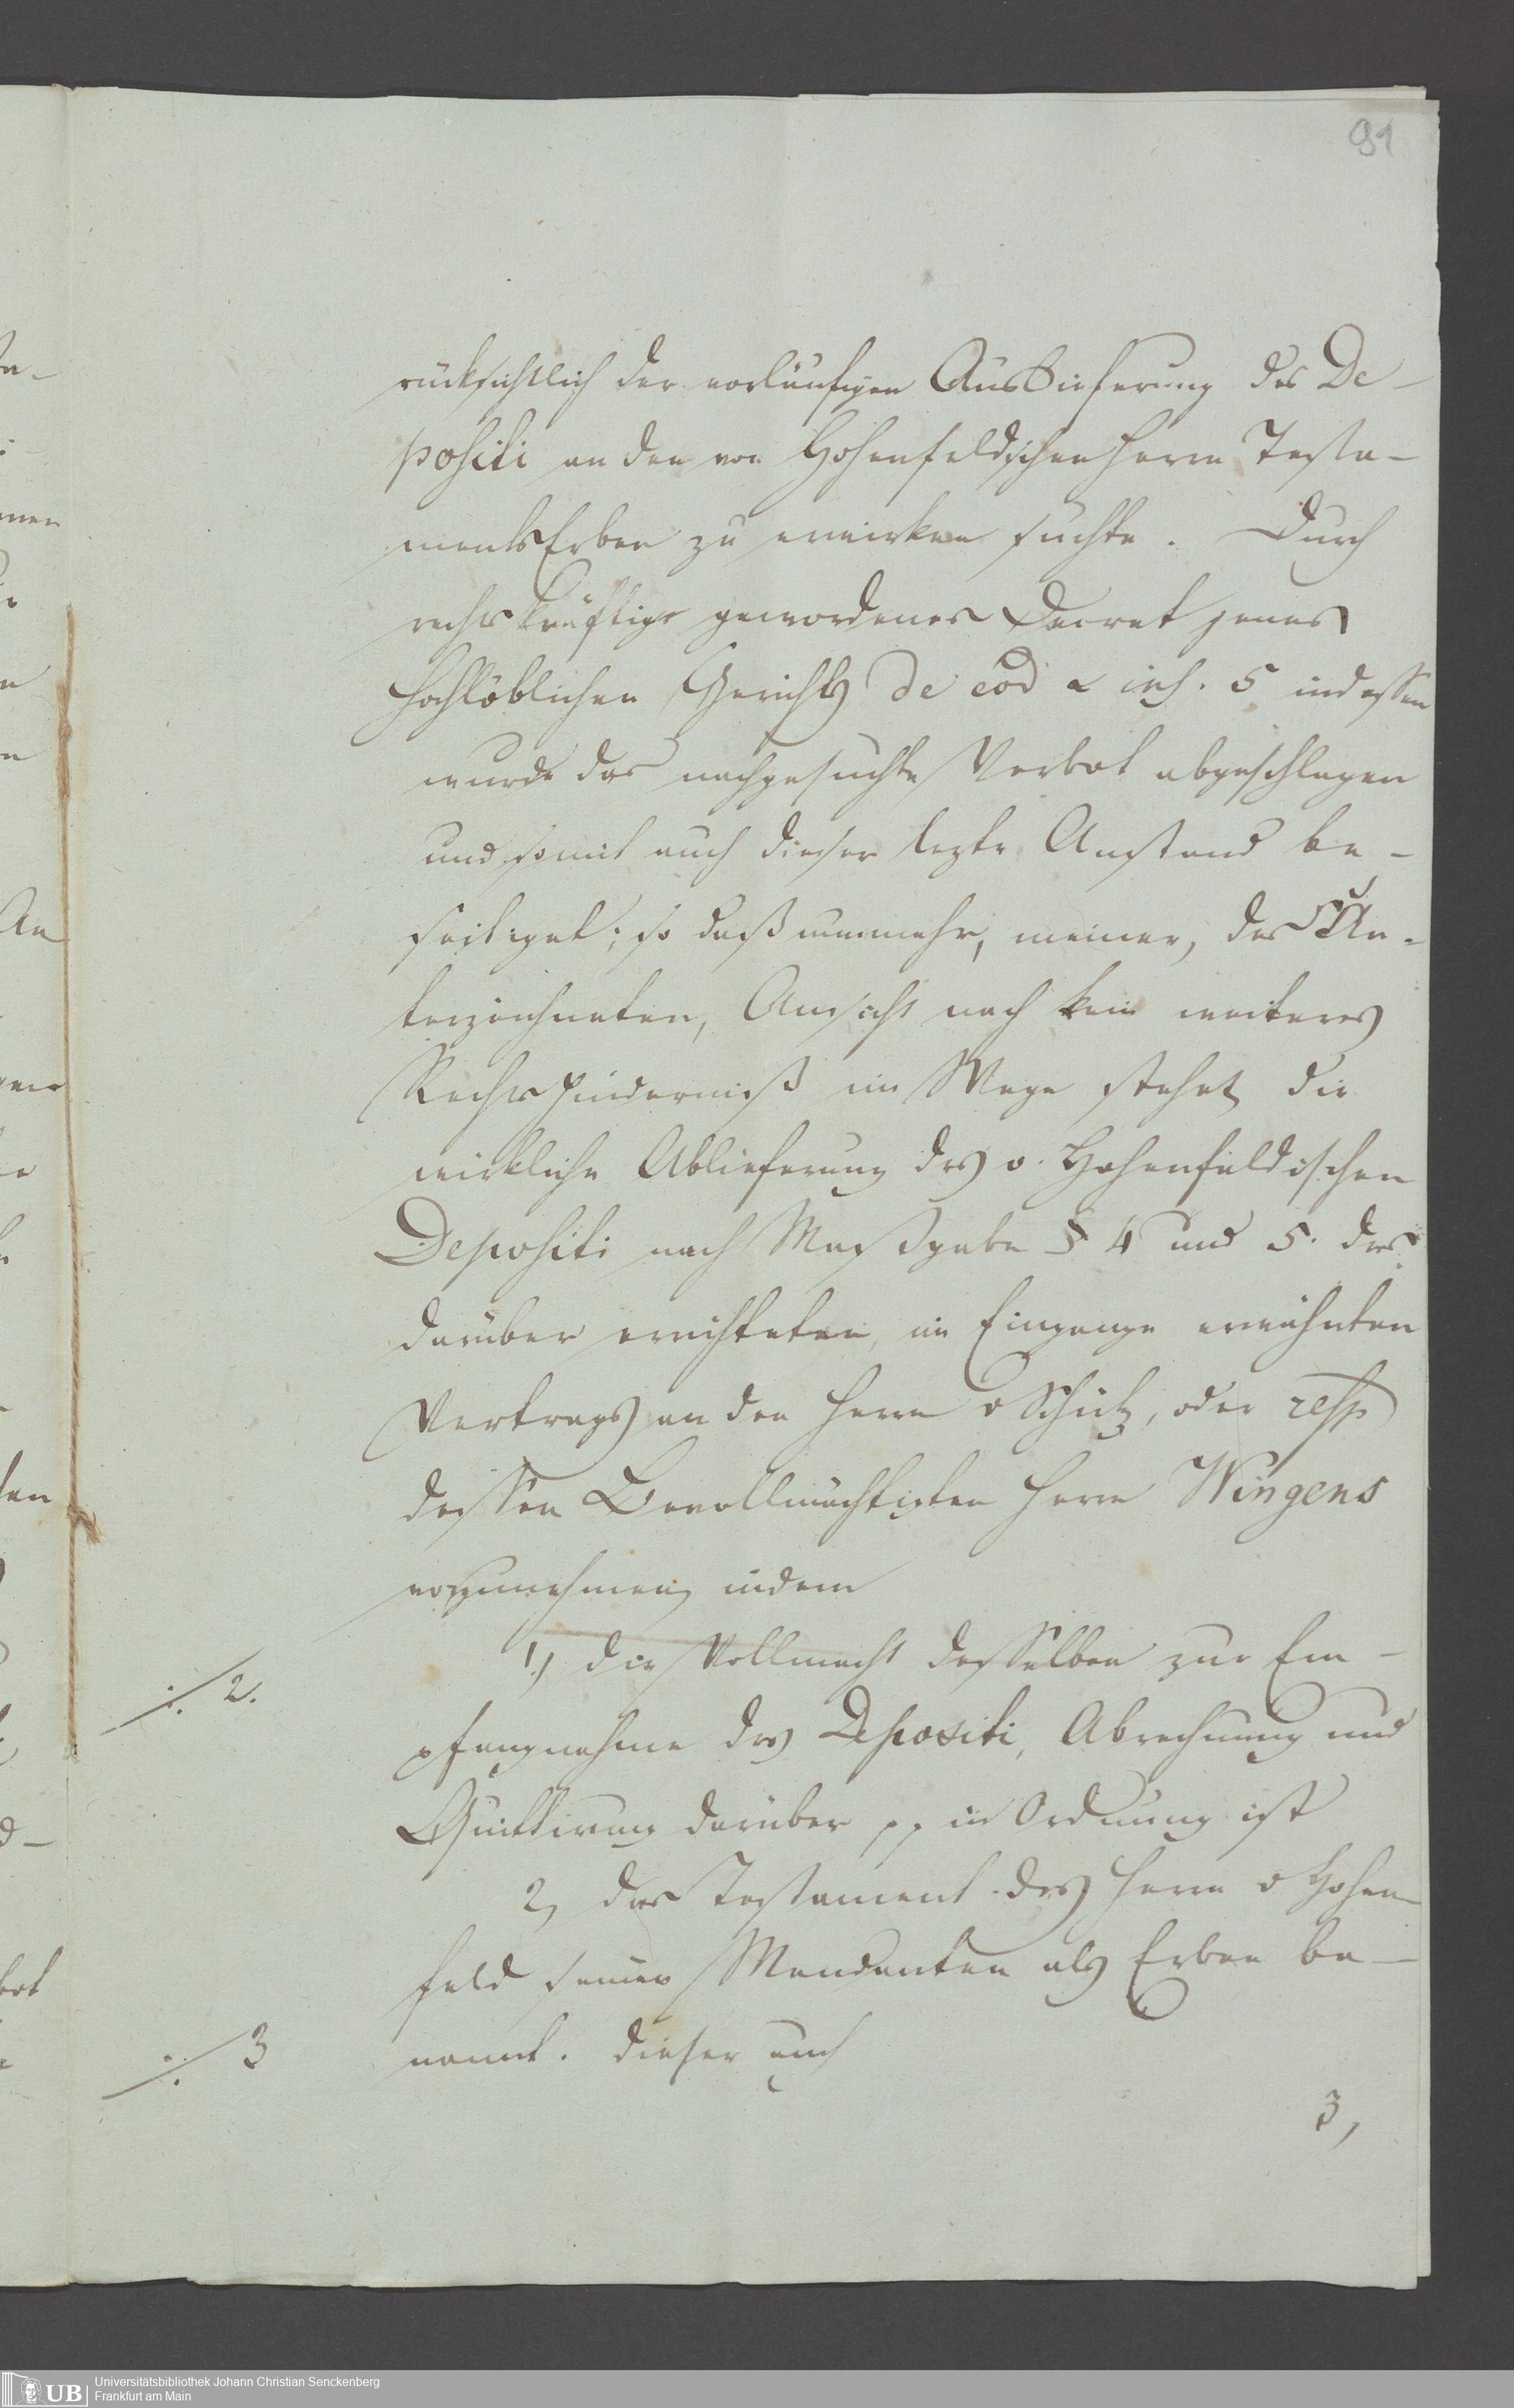 91
rücksichtlich der vorläufigen Auslieferung des De-
positi an den von Hohenfeldschen Herrn Testa-
mentsErben zu erwirken suchte. Durch
rechtskräftige gewordenes Decret jenes
hochlöblichen Gerichts de eod & ins. 5 indessen
wurde das nachgesuchte Verbot abgeschlagen
und somit auch dieser lezte Anstand be-
seitiget; so daß nunmehr, meiner, des Un-
terzeichneten, Ansicht nach kein weiteres
Rechtshinderniß im Wege stehet die
wirkliche Ablieferung des v. Hohenfeldischen
Depositi nach Maßgabe § 4 und 5. des
darüber errichteten, im Eingange erwähnten
Vertrags an den Herrn v Schütz, oder resp
dessen Bevollmächtigten Herrn Wingens
vorzunehmen, indem
1.) die Vollmacht desselben zur Em-
./. 2.
pfangnahme des Depositi, Abrechnung und
Quittirung darüber pp in Ordnung ist
2, das Testament des Herrn v Hohen-
feld seinen Mandanten als Erben be-
./. 3
nennt. dieser auch
3,
UB
Universitätsbibliothek Johann Christian Senckenberg
Frankfurt am Main